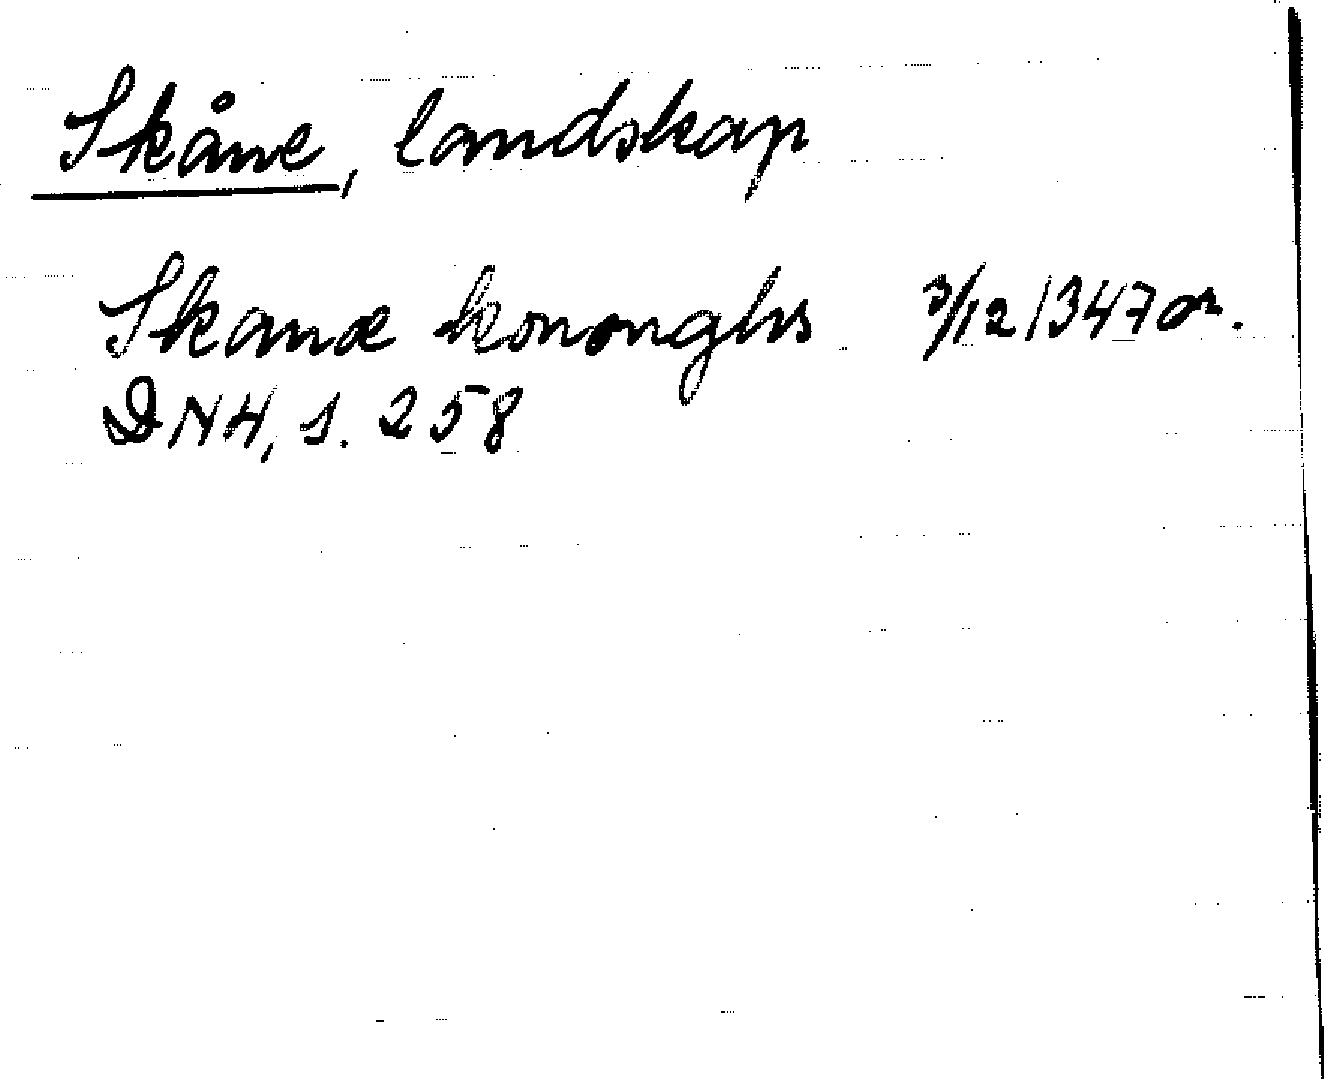 Skåne, landskap
Skanæ kononghs 3/12 1347 or.
DN4, s. 258